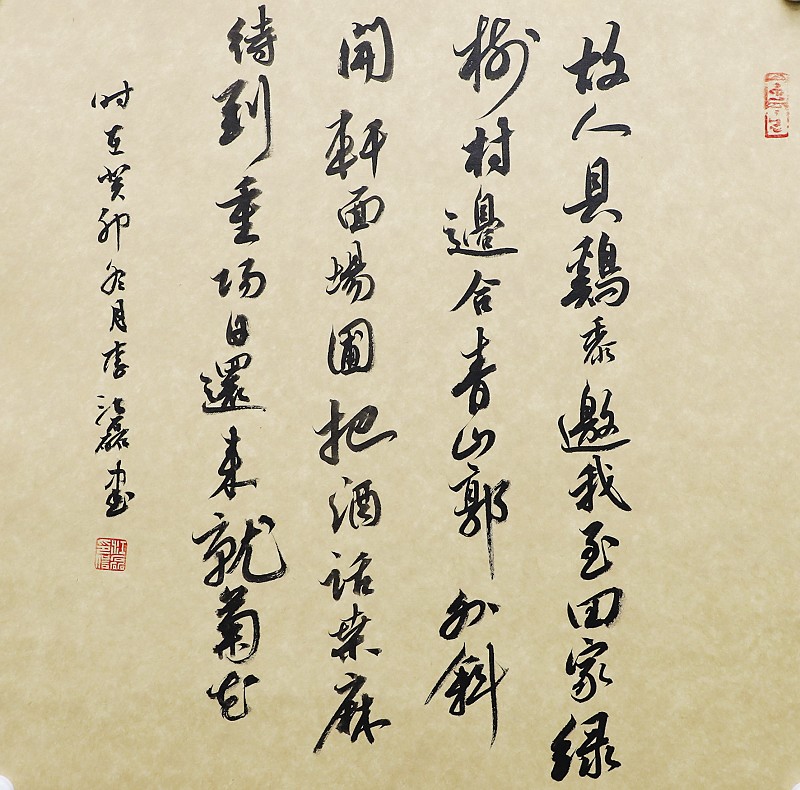 故人具鷄黍邀我至田家绿
树村邊合青山郭外斜
開軒面場圃把酒話桑麻
待到重场日還来就菊花
时在癸卯冬月李江磊書